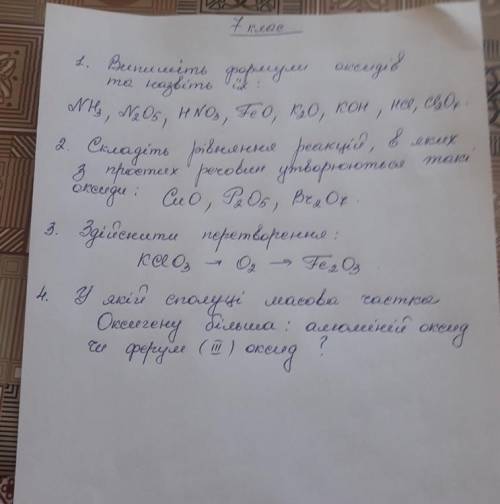 7 клас
1. Випишіть формули оксидів
та назвіть їх:
NH₃, N₂O₅, HNO₃, FeO, K₂O, KOH, HCl, Cl₂O₇.
2. Складіть рівняння реакцій, в яких
з простих речовин утворюються такі
оксиди: CuO, P₂O₅, Br₂O₇.
3. Здійснити перетворення:
KClO₃ → O₂ → Fe₂O₃
4. У якій сполуці масова частка
Оксигену більша: алюміній оксид
чи ферум (III) оксид ?